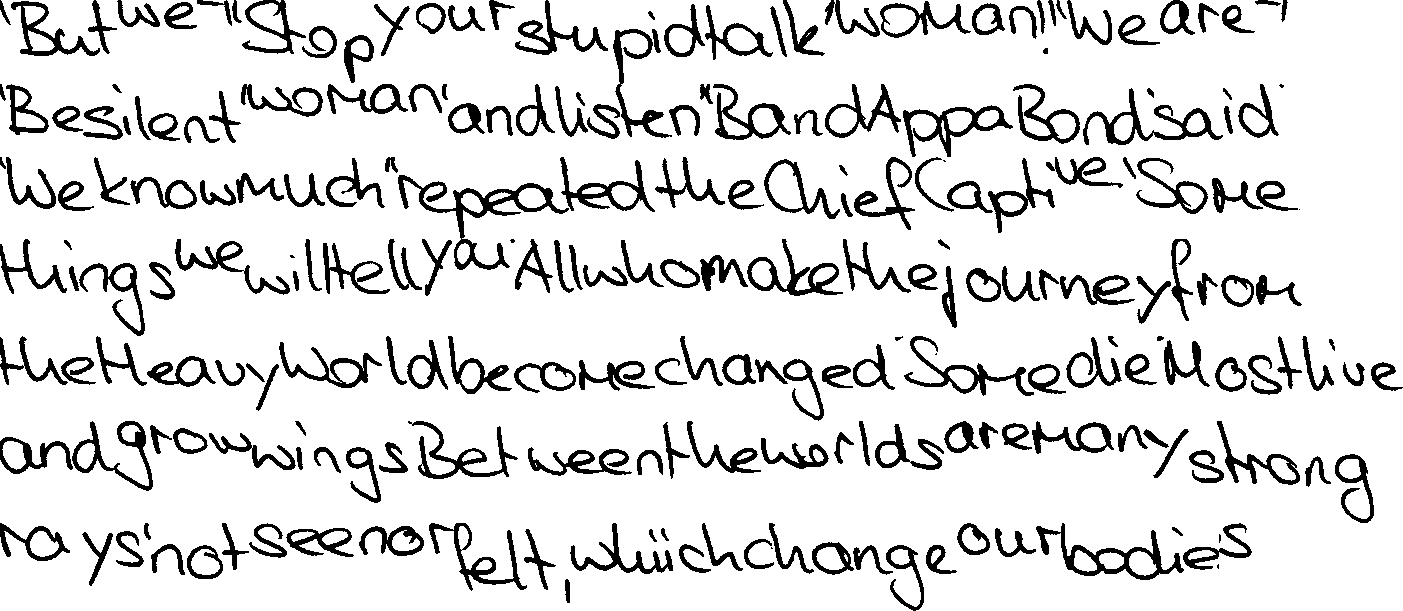 "But we-" "Stop your stupid talk woman!" "We are-"
"Be silent woman and listen" Band Appa Bondsaid
"We know much" repeated the Chief Captive "Some
things we will tell you. All who make the journey from
the Heavy World become changed. Some die. Most live
and grow wings Between the worlds are many strong
rays' not seen or felt, which change our bodies